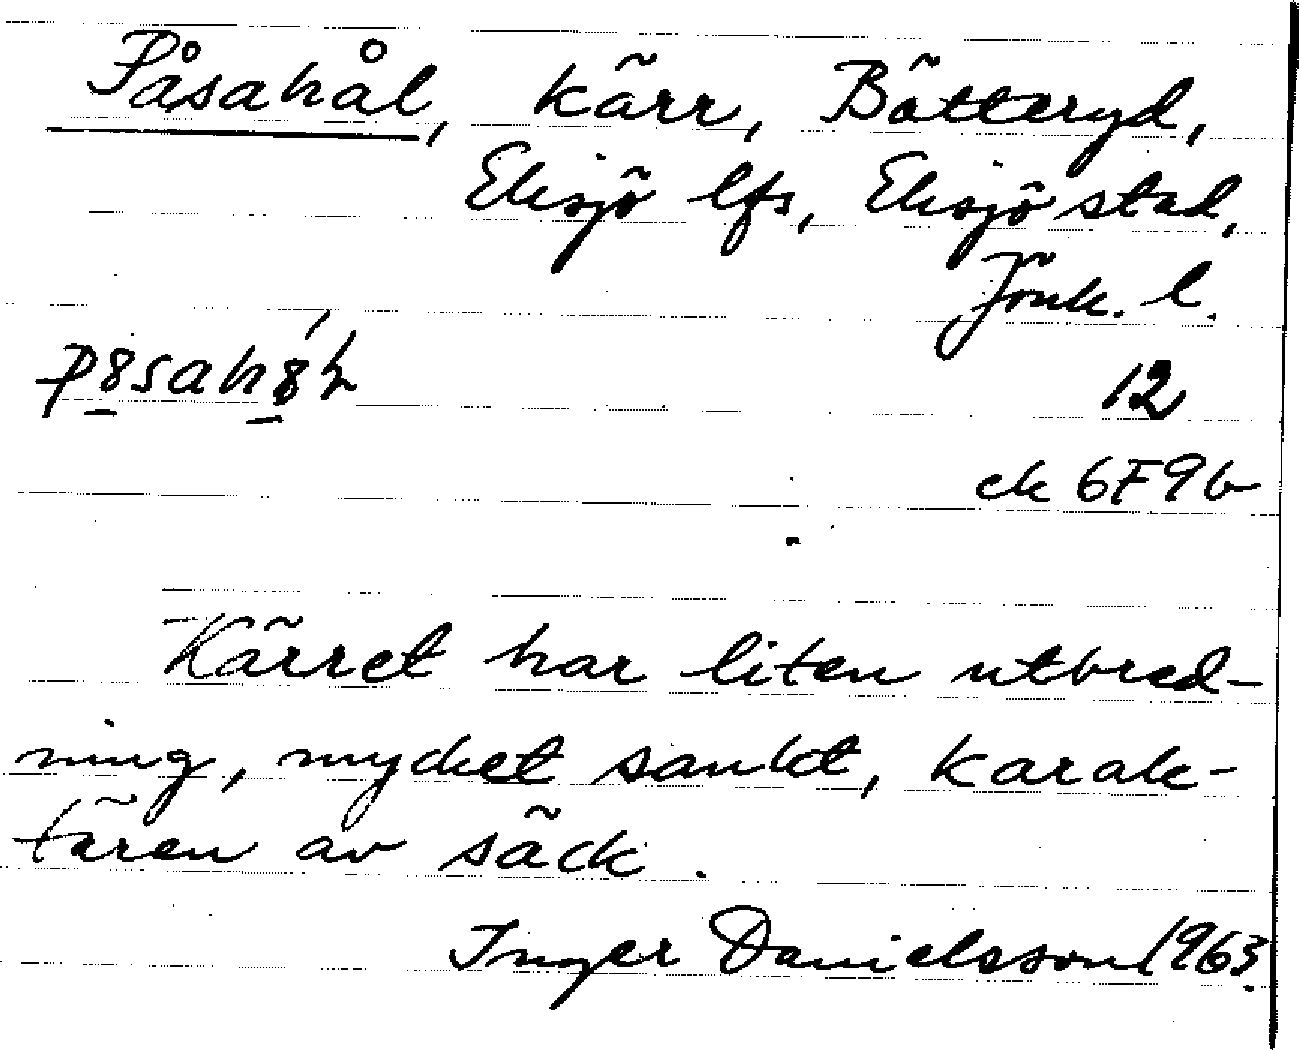 Påsahål, kärr, Bötteryd,
Eksjö lfs, Eksjö stad,
Jönk. l.
12
ek 6F9b
Kärret har liten utbred-
ning, mycket sankt, karak-
tären av säck.
Inger Danielsson 1963